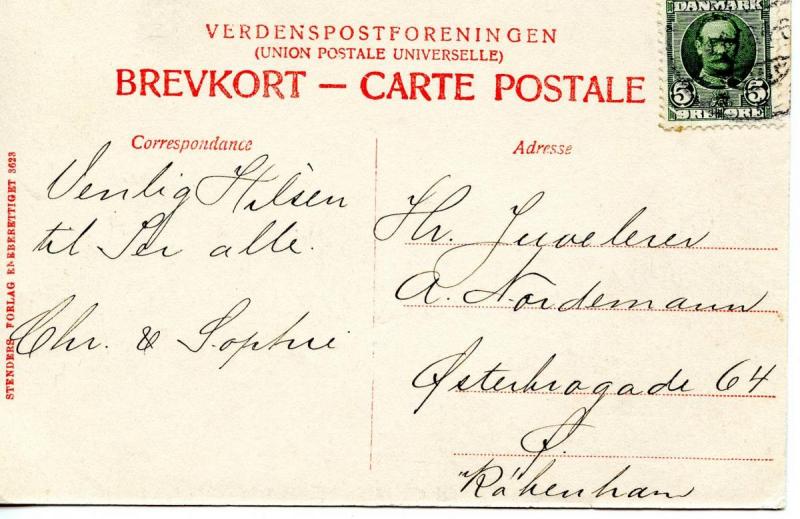 VERDENSPOSTFORENINGEN
(UNION POSTALE UNIVERSELLE)
BREVKORT — CARTE POSTALE
DANMARK
5 5
ØRE ØRE
Correspondance
Venlig Hilsen
til Jer alle.
Chr. & Sophie
Adresse
Hr. Juvelerer
A. Nordemann
Østerbrogade 64
Ø.
København
STENDERS FORLAG ENEBERETTIGET 3623